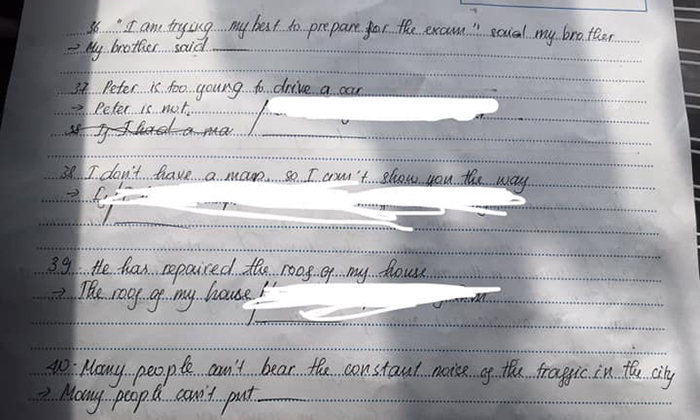 36 "I am trying my best to prepare for the exam", said my brother
→ My brother said
37 Peter is too young to drive a car
→ Peter is not
38 If I had a ma
38 I don't have a map, so I can't show you the way
→
39 He has repaired the roof of my house
→ The roof of my house
40 Many people can't bear the constant noise of the traffic in the city
→ Many people can't put